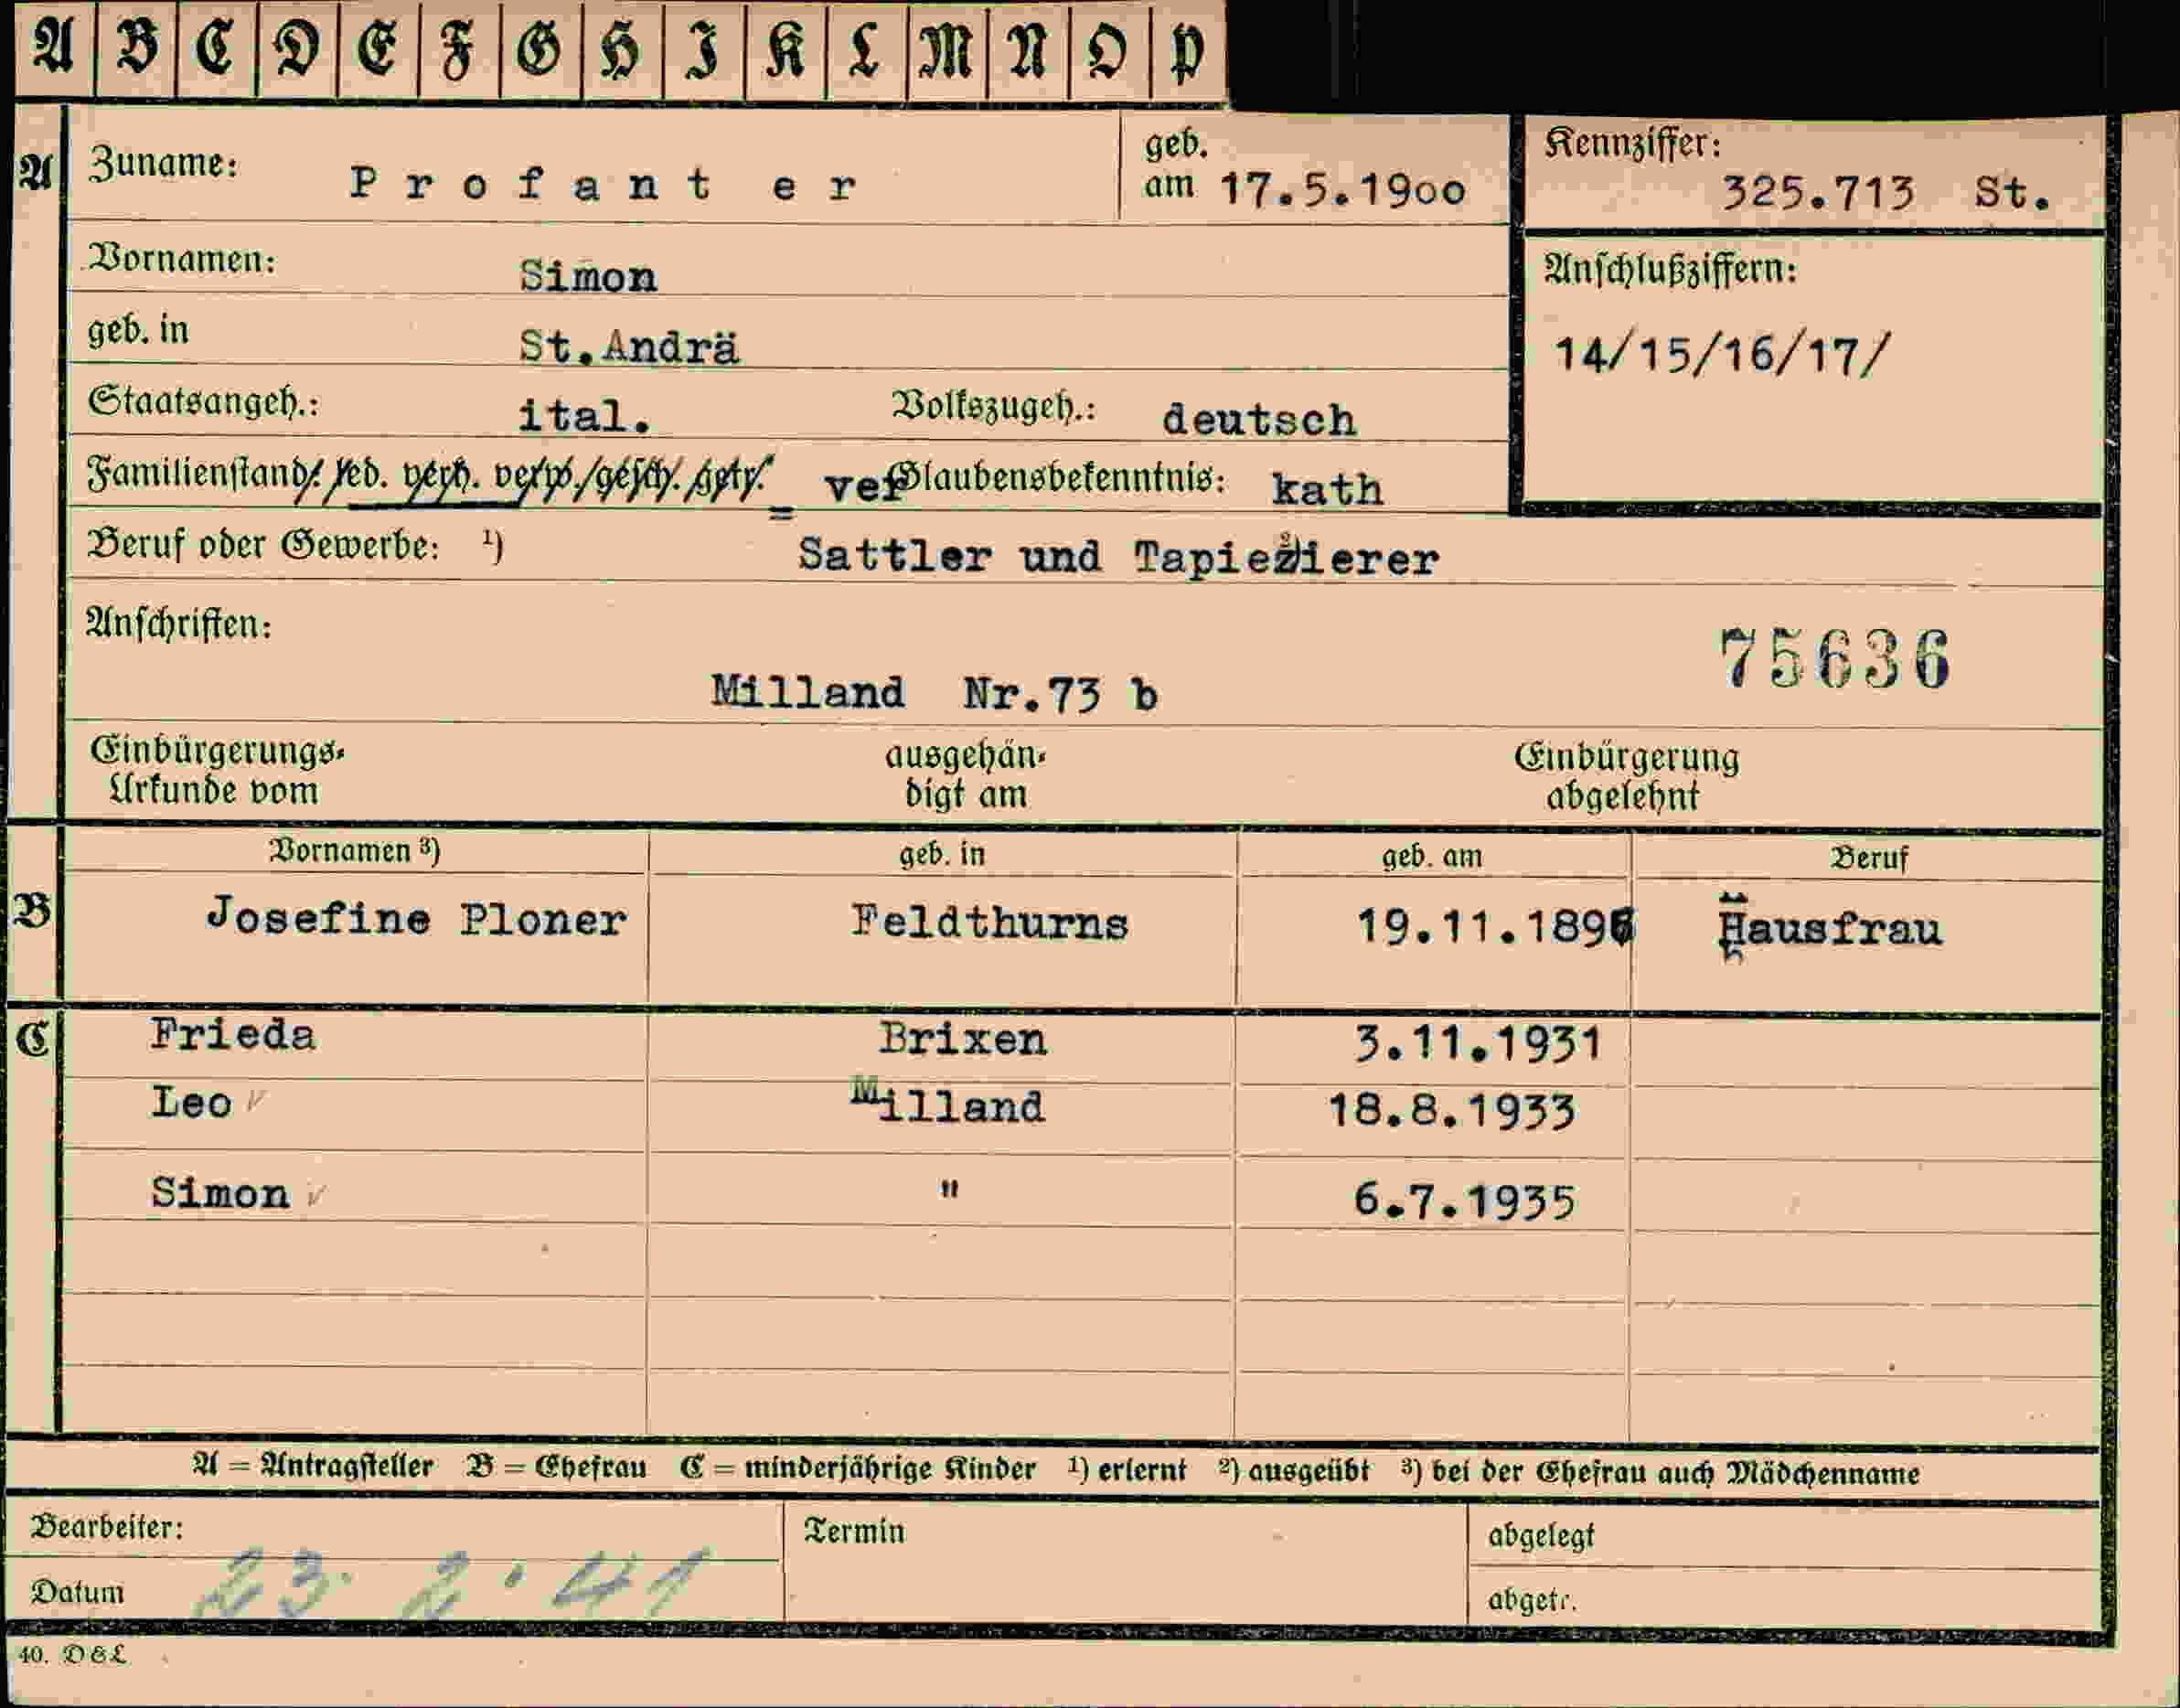 A B C D E F G H I K L M N O P
A Zuname: Profant er geb. am 17.5.1900 Kennziffer: 325.713 St.
Vornamen: Simon Anschlußziffern:
geb. in St.Andrä 14/15/16/17/
Staatsangeh.: ital. Volkszugeh.: deutsch
Familienstand: led. verh. verw. gesch. getr. ver Glaubensbekenntnis: kath
Beruf oder Gewerbe: ¹) Sattler und Tapezierer
Anschriften: 75636
Milland Nr.73 b
Einbürgerungs- ausgehän- Einbürgerung
Urkunde vom digt am abgelehnt
Vornamen ³) geb. in geb. am Beruf
B Josefine Ploner Feldthurns 19.11.189 Hausfrau
C Frieda Brixen 3.11.1931
Leo ✓ Milland 18.8.1933
Simon ✓ " 6.7.1935
A = Antragsteller B = Ehefrau C = minderjährige Kinder ¹) erlernt ²) ausgeübt ³) bei der Ehefrau auch Mädchenname
Bearbeiter: Termin abgelegt
Datum 23. 2. 41 abgetr.
40. D & L